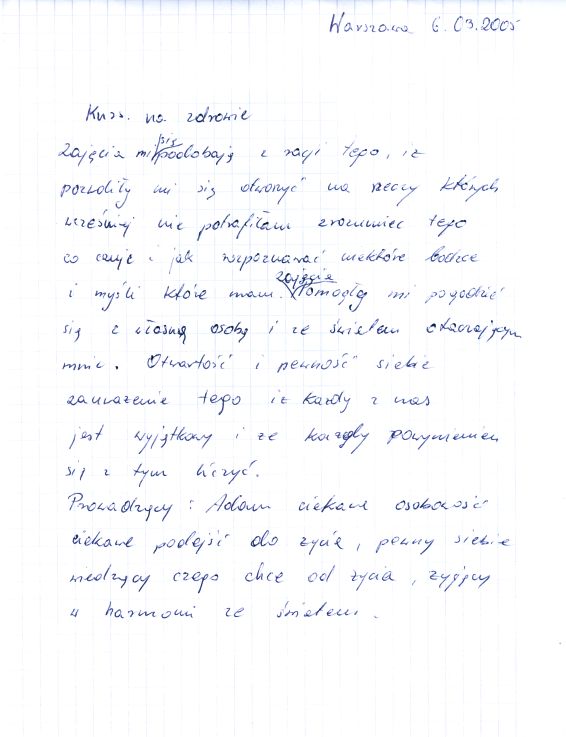 Warszawa 6.03.2005
Kurs. na zdrowie
Zajęcia mi się podobają z racji tego, iż
pozwoliły mi się otworzyć na rzeczy których
wcześniej nie potrafiłam zrozumieć tego
co czuję i jak rozpoznawać niektóre bodźce
i myśli które mam. zajęcia Pomogły mi pogodzić
się z własną osobą i ze światem otaczającym
mnie. Otwartość i pewność siebie
zauważenie tego iż każdy z nas
jest wyjątkowy i że każdy powinien
się z tym liczyć.
Prowadzący: Adam ciekawa osobowość
ciekawe podejść do życia, pewny siebie
wiedzący czego chce od życia, żyjący
w harmonii ze światem.